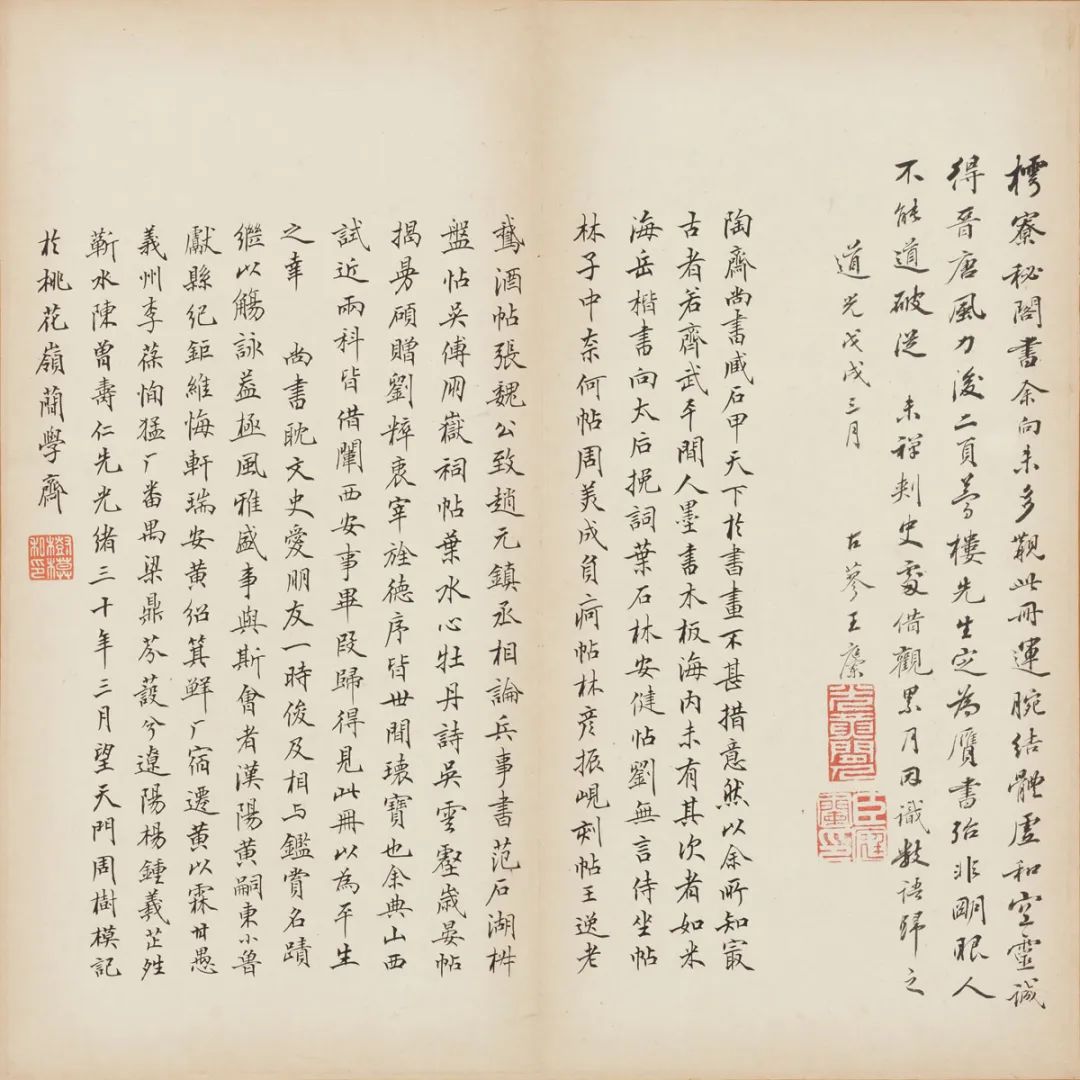 樗寮秘閣書余向未多覯此冊運腕結體虛和空靈誠
得晉唐風力後二頁夢樓先生定為贋書殆非明眼人
不能道破從 未禪刺史處借觀累月因識數語歸之
道光戊戌三月 古蓼王
陶齋尚書臧石甲天下於書畫不甚措意然以余所知最
古者若齊武平間人墨書木板海内未有其次者如米
海岳楷書向太后挽詞葉石林安健帖劉無言侍坐帖
林子中奈何帖周美成負痾帖林彥振峴刻帖王逸老
鵞酒帖張魏公致趙元鎮丞相論兵事書范石湖
盤帖吳傅朋嶽祠帖葉水心牡丹詩吳雲壑歲晏帖
揭曼碩贈劉粹衷宰旌德序皆世間瓌寶也余典山西
試近兩科皆借闈西安事畢叚歸得見此冊以為平生
之幸 尚書耽文史愛朋友一時俊及相与鑑賞名蹟
繼以觴詠益極風雅盛事與斯會者漢陽黃嗣東小魯
獻縣紀鉅維悔軒瑞安黃紹箕鮮厂宿遷黃以霖甘愚
義州李葆恂猛厂番禺梁鼎芬葭兮遼陽楊鍾羲芷姓
蘄水陳曾壽仁先光緒三十年三月望天門周樹模記
於桃花嶺蕳學齋
樹模
和印